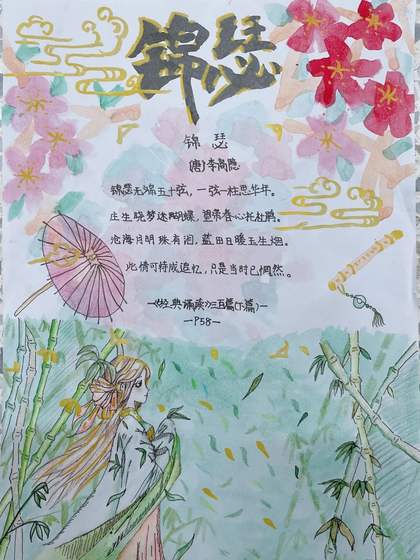 锦瑟
锦瑟
(唐)李商隐
锦瑟无端五十弦，一弦一柱思华年。
庄生晓梦迷蝴蝶，望帝春心托杜鹃。
沧海月明珠有泪，蓝田日暖玉生烟。
此情可待成追忆，只是当时已惘然。
—《经典诵读》三百篇(下篇)—
—P58—